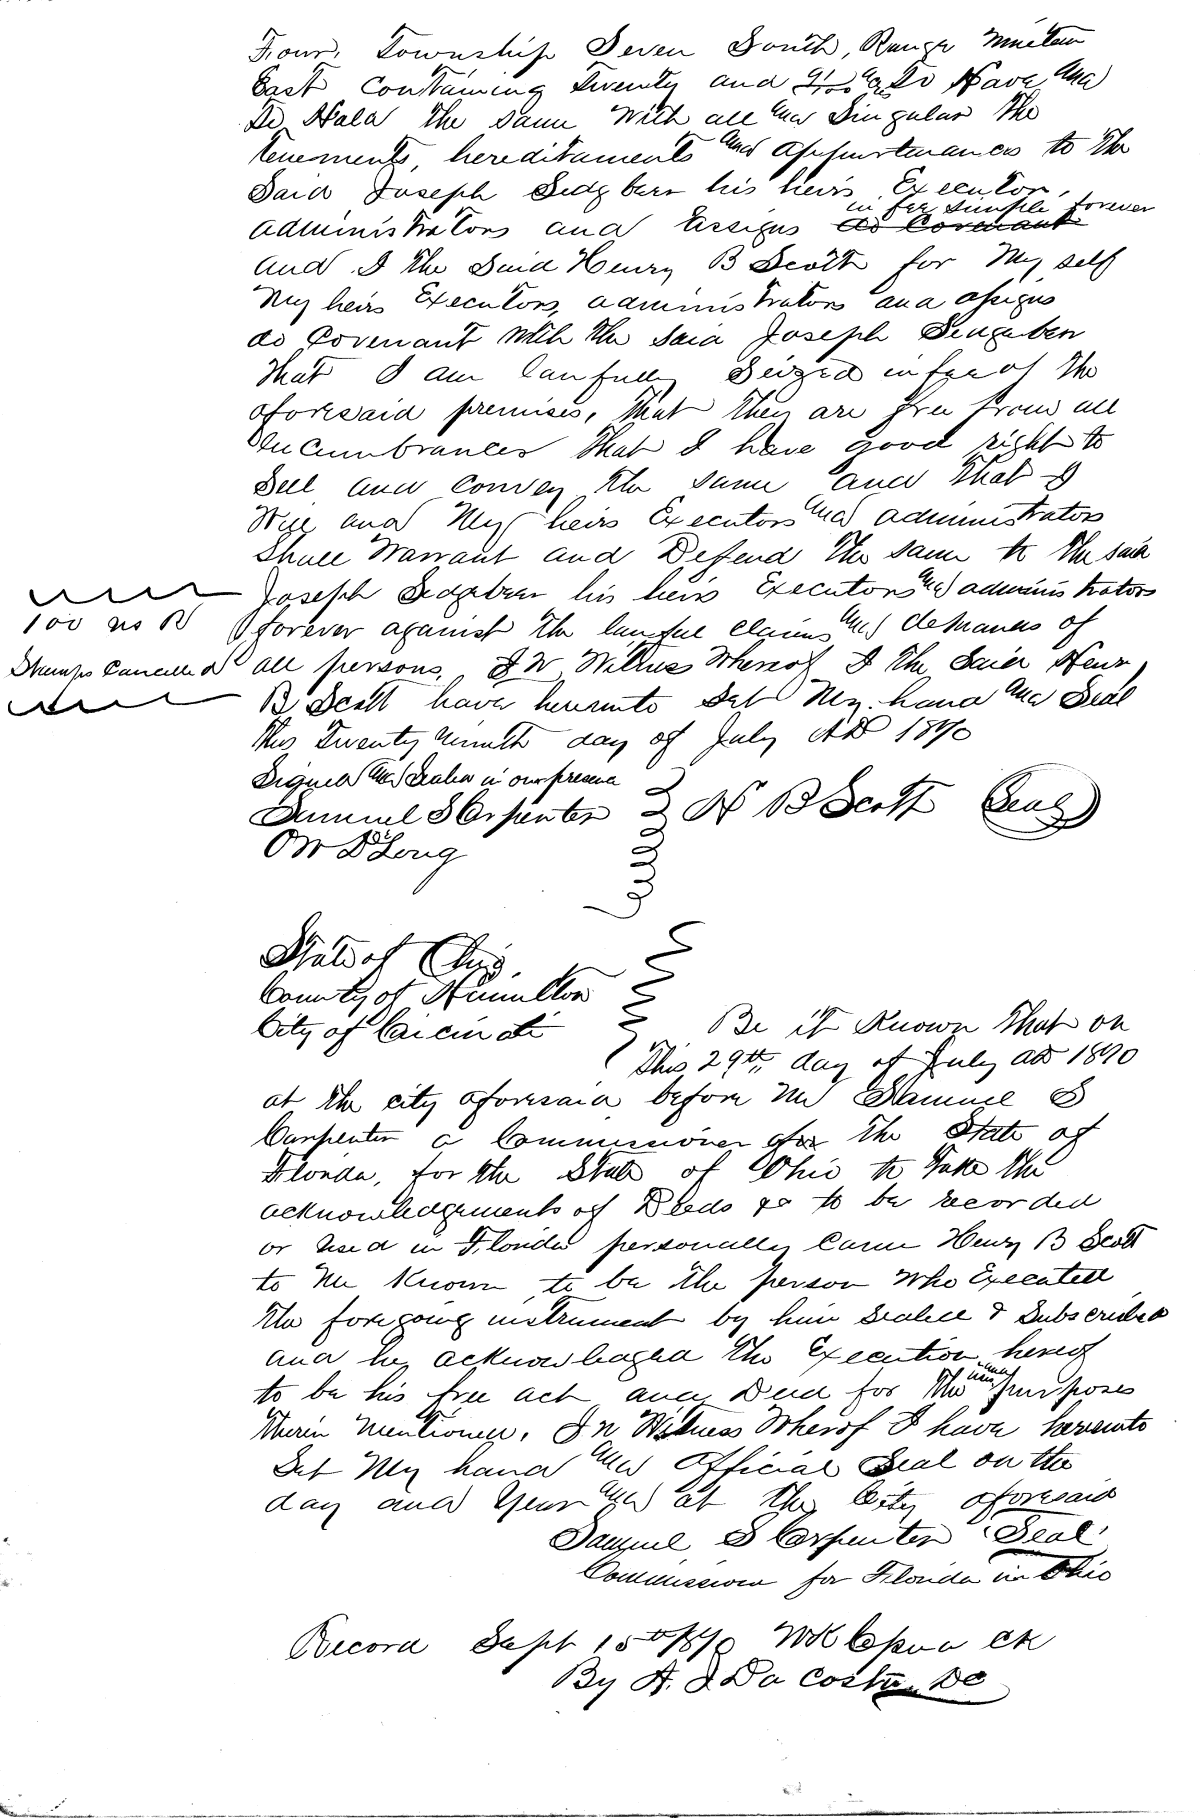 Four, Township Seven South, Range Nineteen
East Containing Twenty and To Have and
To Hold the same with all and Singular the
tenements, hereditaments and appurtenances to the
Said Joseph his heirs, Executor,
in fee simple forever
administrators and assigns do Covenant
and I the Said Henry B Scott for My self
My heirs Executors, administrators and assigns
do Covenant with the said Joseph
that I am lawfully Seized in fee of the
aforesaid premises, that they are free from all
incumbrances that I have good right to
Sell and Convey the same and that I
Will and My heirs Executors and administrators
Shall Warrant and Defend the same to the said
Joseph his heirs Executors and administrators
forever against the lawful claims and demands of
all persons, In Witness Whereof I the Said Henry
B Scott have hereunto Set My hand and Seal
this Twenty Ninth day of July AD 1870
100 R
Stamps Cancelled
Signed and Sealed in our presence
Samuel S Carpenter H B Scott Seal
O W D Long
State of Ohio
County of Hamilton
City of Cicinati Be it Known that on
this 29th, day of July AD 1870
at the city aforesaid before me Samuel S
Carpenter a Commissioner the State of
Florida, for the State of Ohio to take the
acknowledgements of Deeds &c to be recorded
or used in Florida personally came Henry B Scott
to me Known to be the person who Executed
the foregoing instrument by him sealed & Subscribed
and he acknowledged the Execution hereof
to be his free act and Deed for the purposes
therin mentioned. In Witness Wherof I have hereunto
Set My hand and official Seal on the
day and Year and at the City aforesaid
Samuel S Carpenter Seal
Commission for Florida in Ohio
Record Sept 15th 1870 Ck
By A. J Da Costa DC